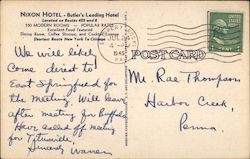 NIXON HOTEL - Butler's Leading Hotel
Located on Routes 422 and 8
150 MODERN ROOMS - POPULAR RATES
Excellent Food Featured
Dining Room, Coffee Shoppe, and Cocktail
Shortest Route New York To Chicago
We will likely
come direct to
East Springfield for
the meeting. Will leave
after meeting for Buffalo
Have called off meeting
for Titusville.
Sincerely
Warren
POST CARD
1945
PA.
Mr. Rae Thompson
Harbor Creek,
Penna.